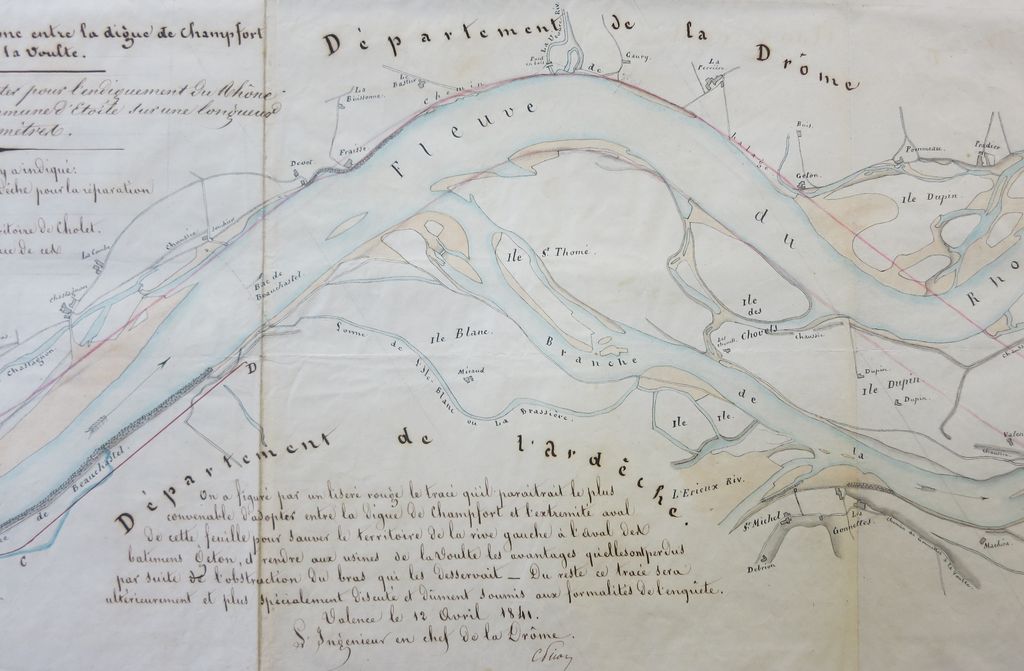 entre la digue de Champfort
la Voulte.
pour l'endiguement du Rhône
d'Etoile sur une longueur
mètres.
y a indiqué:
pour la réparation
de Cholet.
Département de la Drôme
Département de l'ardèche.
Fleuve du Rho
chemin de halage
La Buissonne.
La Bastie
Fraisse
Devet.
Gaury.
La Perrière
Bois.
Geton.
Pommeau.
Pradier
Ile Dupin.
Chaussée
La Combe
Chastagnon
Chastagnon
Bac de
Beauchastel.
Ile St Thomé.
Ile Blanc.
Ile
des
Chovets
Chaussée
Méraud
Lonne de l'Isle Blanc ou La Brassière.
Branche de la
Dupin.
Ile Dupin
Dupin.
Ile Ile.
L'Erieux Riv.
St Michel
Les
Gonnettes.
Debrion
de Beauchastel.
D
C
On a figuré par un liseré rouge le tracé qu'il paraitrait le plus
convenable d'adopter entre la digue de Champfort et l'extremité aval
de cette feuille pour sauver le territoire de la rive gauche à l'aval des
batimens Geton, et rendre aux usines de la Voulte les avantages qu'elles ont perdus
par suite de l'obstruction du bras qui les desservait — Du reste ce tracé sera
ultérieurement et plus spécialement discuté et dûment soumis aux formalités de l'enquête.
Valence le 12 Avril 1841.
L'Ingénieur en chef de la Drôme.